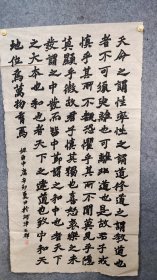 天命之謂性率性之謂道修道之謂教道也
者不可須臾離也可離非道也是故君子戒
慎乎其所不睹恐懼乎其所不聞莫見乎隱
莫顯乎微故君子慎其獨也喜怒哀樂之未
發謂之中發而皆中節謂之和中也者天下
之大本也和也者天下之達道也致中和天
地位焉萬物育焉